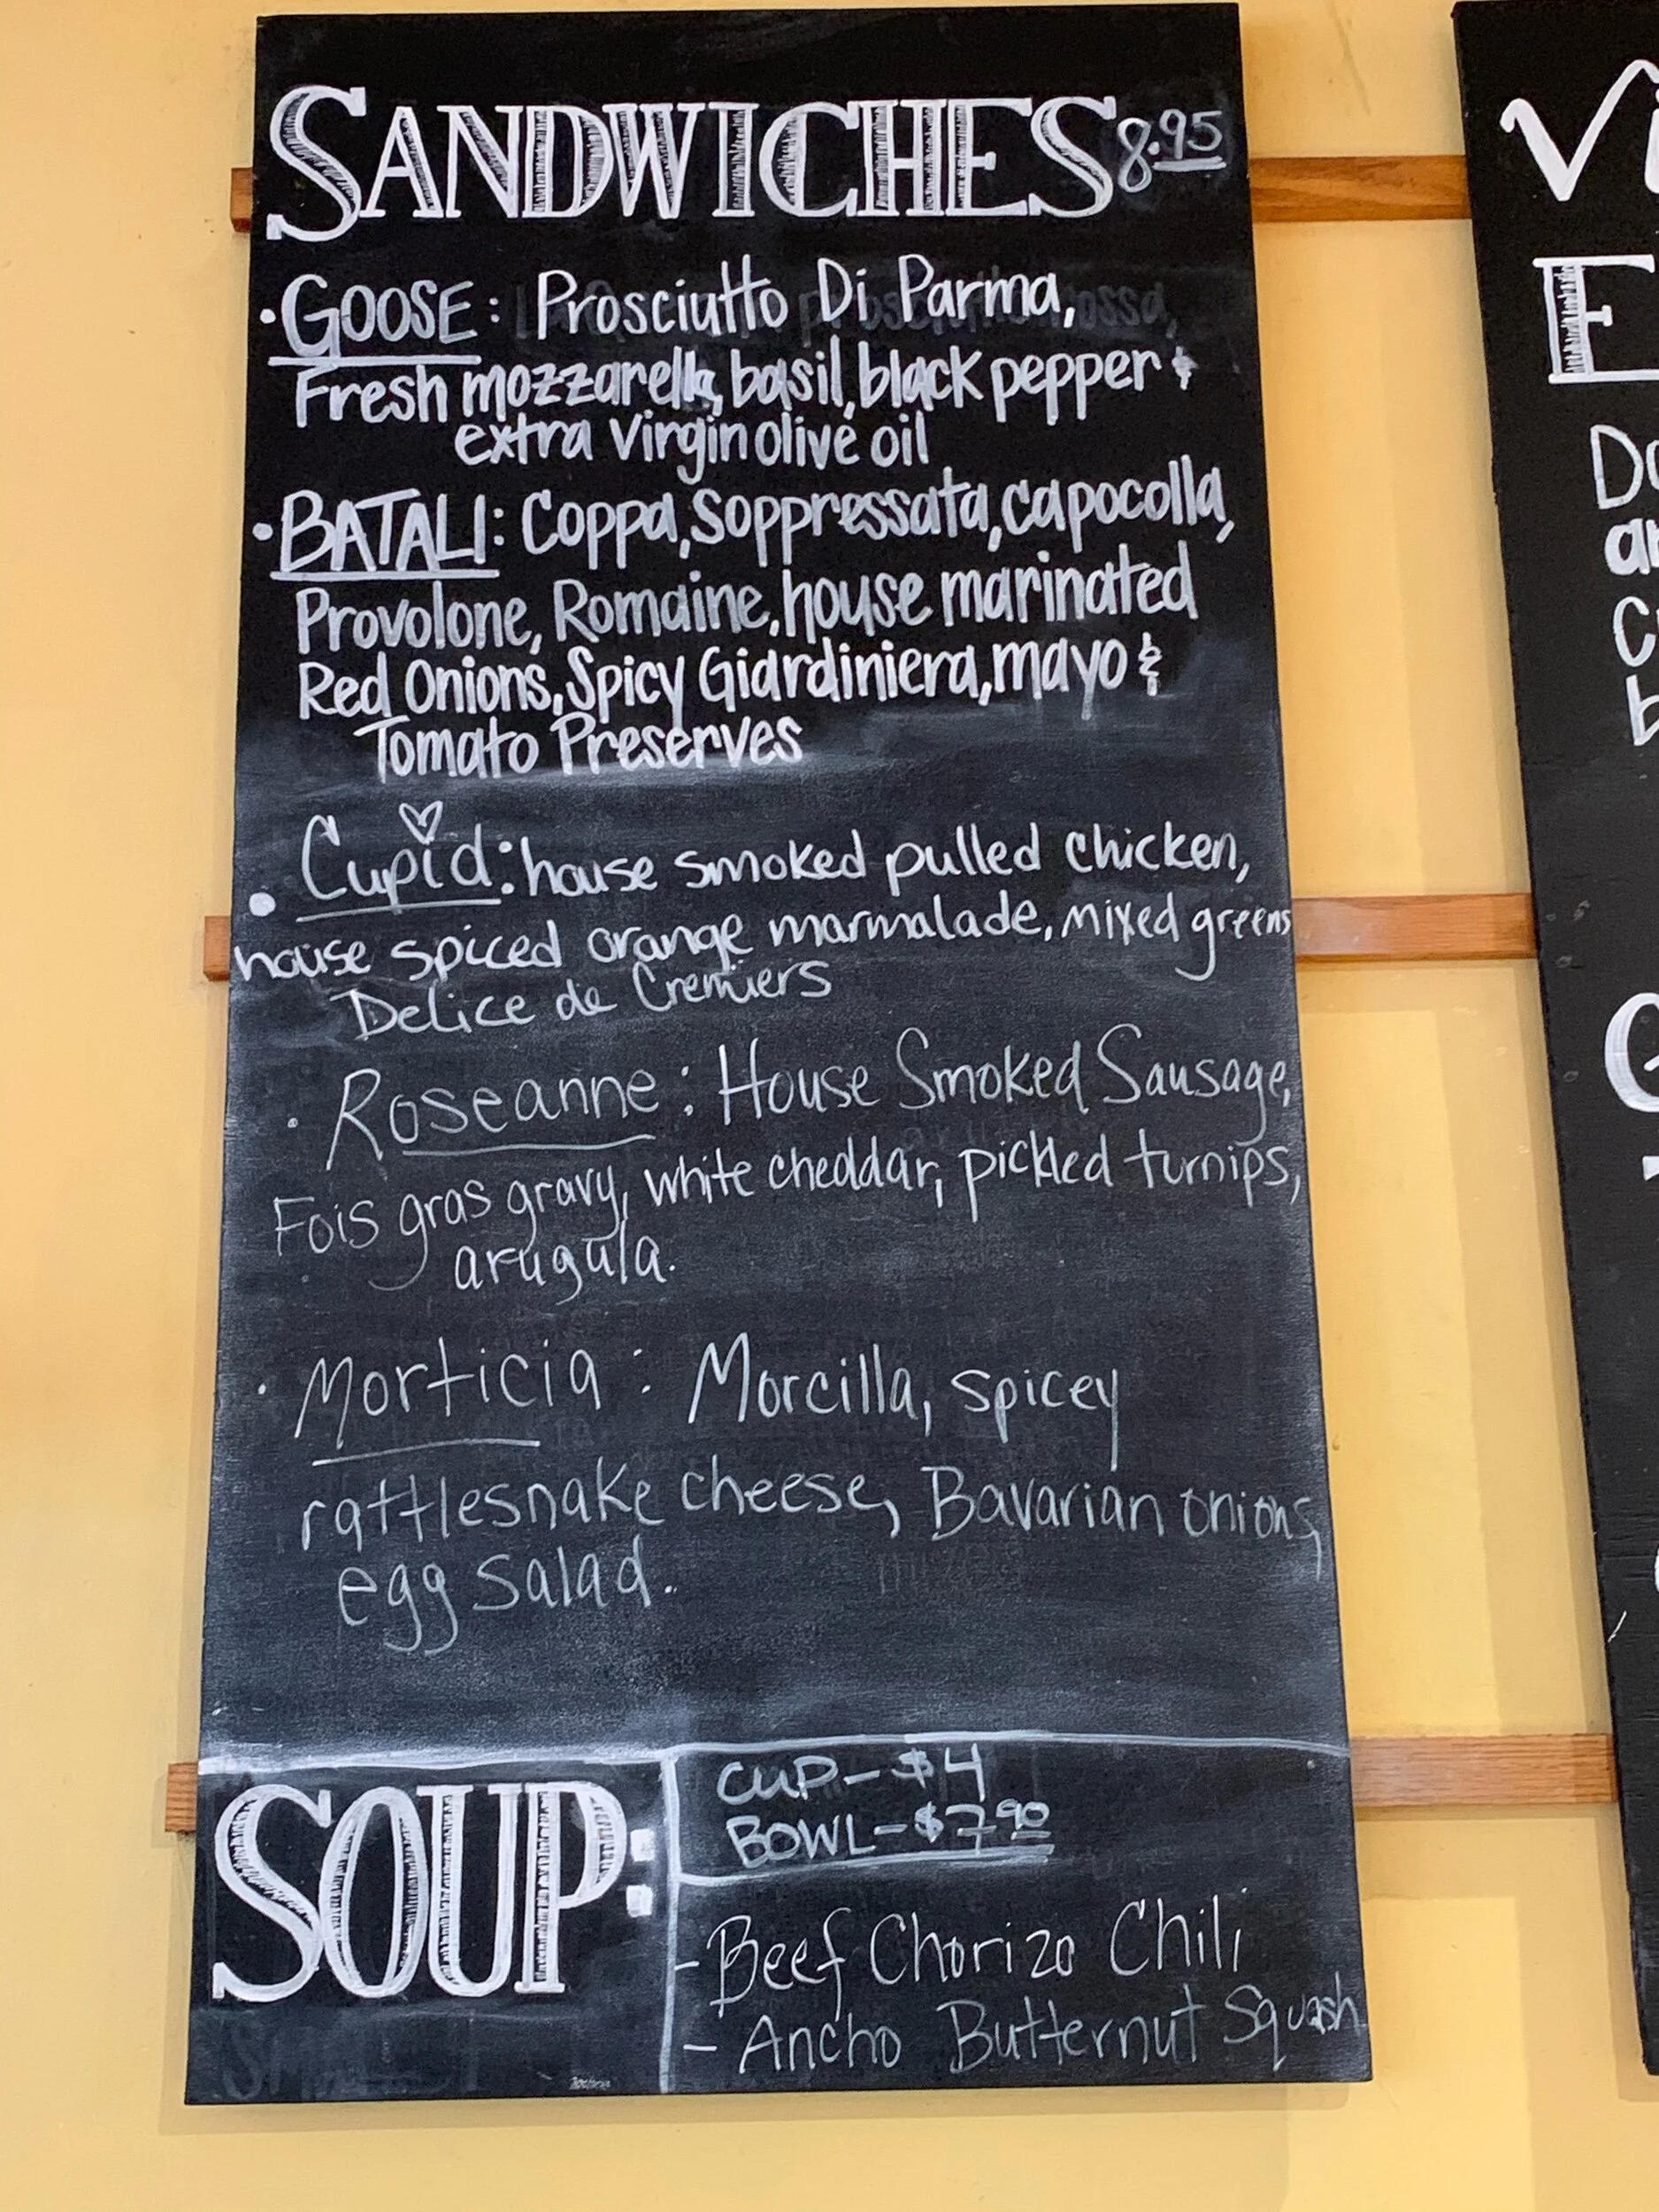 SANDWICHES 8.95
· GOOSE: Prosciutto Di Parma,
Fresh mozzarella, basil, black pepper &
extra virgin olive oil
· BATALI: Coppa, Soppressata, capocolla,
Provolone, Romaine, house marinated
Red Onions, Spicy Giardiniera, mayo &
Tomato Preserves
· Cupid: house smoked pulled chicken,
house spiced orange marmalade, mixed greens
Delice de Cremiers
· Roseanne: House Smoked Sausage,
Fois gras gravy, white cheddar, pickled turnips,
arugula.
· Morticia: Morcilla, spicey
rattlesnake cheese, Bavarian onions,
egg salad.
SOUP:
CUP - $4
BOWL - $7.90
- Beef Chorizo Chili
- Ancho Butternut Squash